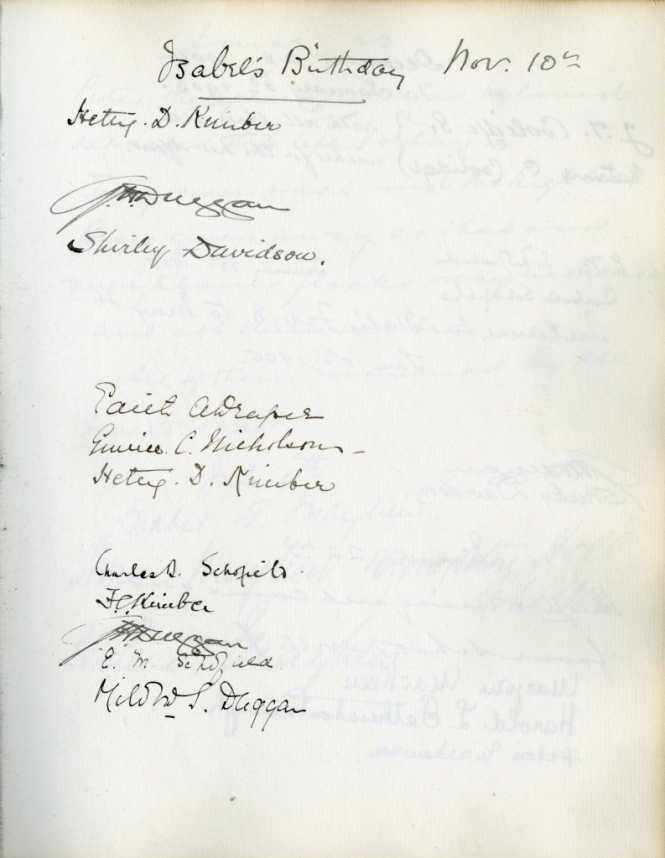 Isabel's Birthday Nov. 10th
Hetty. D. Kimber
G.H. Duggan
Shirley Davidson.
Edith A Draper
Eunice. C. Nicholson -
Hetty. D. Kimber
Charles D. Schofield.
F C Kimber
G.H. Duggan
E. M Schofield
Mildrd S. Duggan